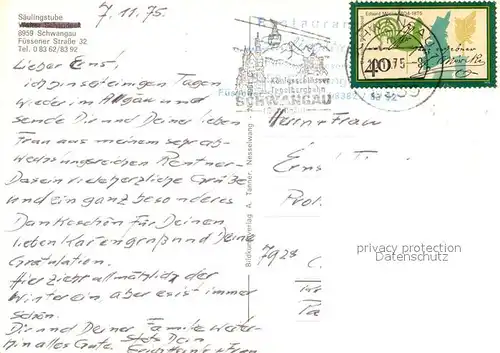 Säulingstube
8959 Schwangau
Füssener Straße 32
Tel. 0 83 62/83 92
7.11.75.
Lieber Ernst,
ich bin seit einigen Tagen
wieder im Allgäu und
sende Dir und Deiner lieben
Frau aus meinem sehr ab-
wechslungsreichen Rentner-
Dasein die herzliche Grüße
und ein ganz besonderes
Dankeschön für Deinen
lieben Kartengruß und Deine
Gratulation.
Hier zieht allmählich der
Winter ein, aber es ist immer
schön.
Dir und Deiner Familie weiter-
hin alles Gute. Stets Dein
Frau
Bildkunstverlag A. Tanner, Nesselwang
Königsschlösser
Tegelbergbahn
SCHWANGAU
Eduard Mörike 1804-1875
40
Herrn u. Frau
Ernst
Prof.
7928
privacy protection
Datenschutz